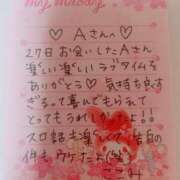 my melody
♡ Aさんへ ♡
27日お会いしたAさん
楽しい楽しいラブタイムを
ありがとう♡ 気持ち良す
ぎるって喜んでもらえて
とってもうれしいよ♪
スロ話も楽しくて 告白
の件もウケたよ(笑)